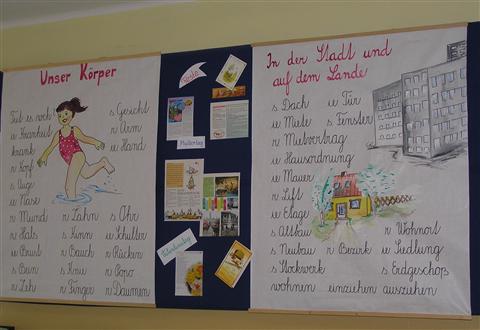 Unser Körper
Tut es s Gesicht
e Krankheit r Arm
krank e Hand
r Kopf
s Auge
e Nase
r Mund r Zahn s Ohr
r Hals s Kinn e Schulter
e Brust r Bauch r Rücken
s Bein s Knie r Popo
r Zeh r Finger r Daumen
Feste
Muttertag
In der Stadt und
auf dem Lande
s Dach e Tür
e Miete s Fenster
r Mietvertrag
e Hausordnung
e Mauer
r Lift
e Etage
s Altbau r Wohnort
s Neubau r Bezirk e Siedlung
s Stockwerk s Erdgeschoß
wohnen einziehen ausziehen